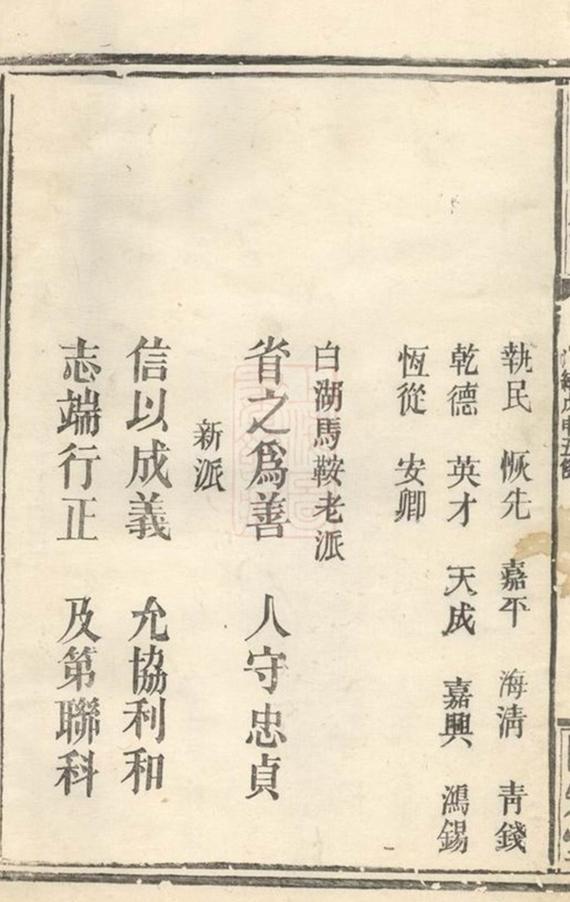 執民 恢先 嘉平 海清 青錢
乾德 英才 天成 嘉興 鴻錫
恆從 安卿
白湖馬鞍老派
省之爲善 人守忠貞
新派
信以成義 允協利和
志端行正 及第聯科